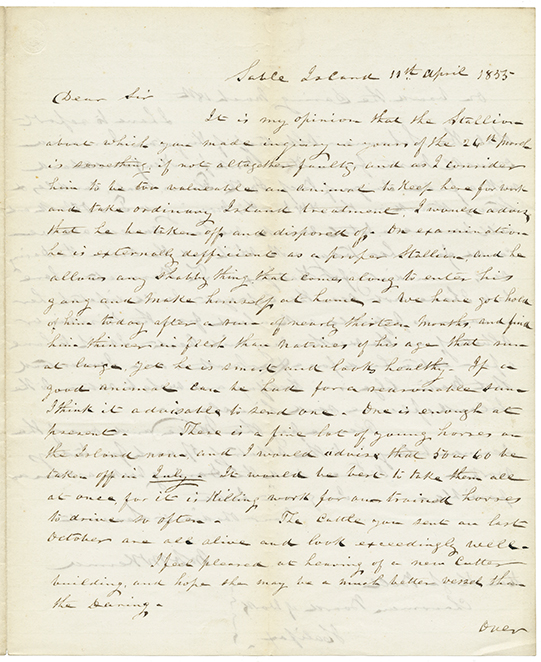 Sable Island 11th April 1855
Dear Sir
It is my opinion that the Stallion
about which you made inquiry in yours of the 26th March
is something if not altogether faulty and as I consider
him to be too valueable an animal to keep here for work
and take ordinary Island treatment, I would advise
that he be taken off and disposed of. On examination
he is externally defficient as a proper Stallion and he
allows any shabby thing that comes along to enter his
gang and make himself at home - We have got hold
of him today after a run of nearly thirteen months, and find
him thinner in flesh than natives of his age that run
at large yet he is smart and looks healthy - If a
good animal can be had for a reasonable sum
I think it advisable to send one - One is enough at
present - There is a fine lot of young horses on
the Island now and I would advise that 50 or 60 be
take off in July - It would be best to take them all
at once for it is killing work for un trained horses
to drive so often - The Cattle you sent on last
October are all alive and look exceedingly well -
I feel pleased at hearing of a new Cutter
building, and hope she may be a much better vessel than
the Daring -
over